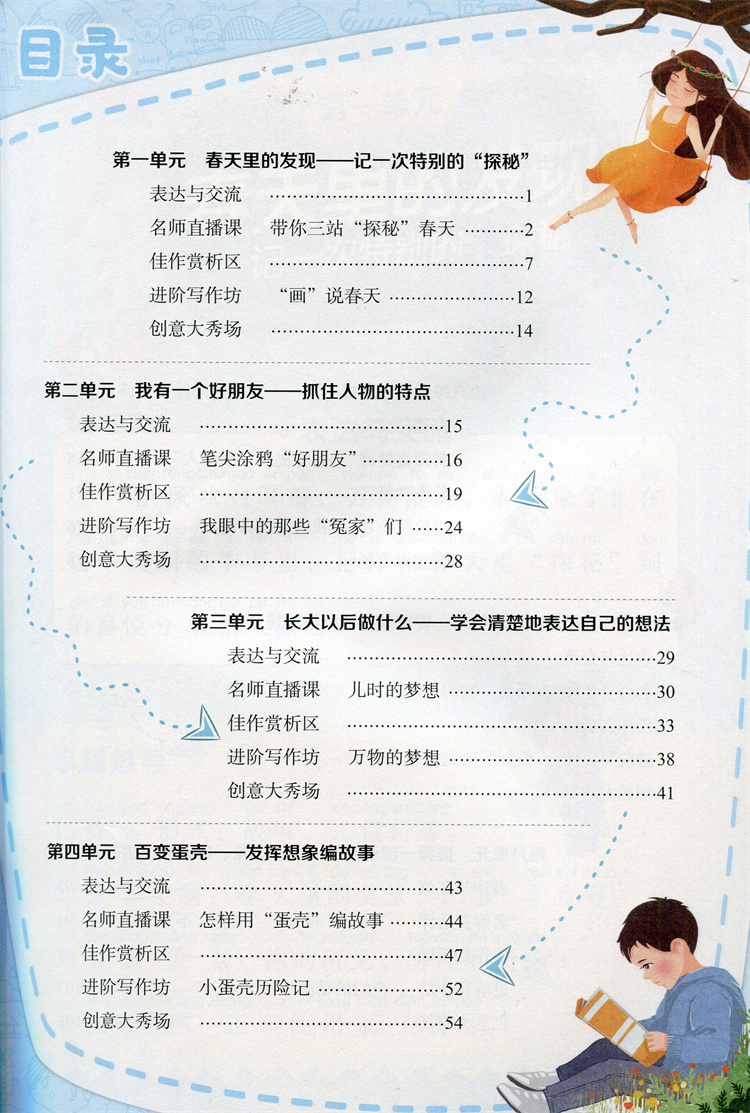 目录
第一单元 春天里的发现——记一次特别的“探秘”
表达与交流 ……………………1
名师直播课 带你三站“探秘”春天 ………2
佳作赏析区 ……………………7
进阶写作坊 “画”说春天 ……………12
创意大秀场 ……………………14
第二单元 我有一个好朋友——抓住人物的特点
表达与交流 ……………………15
名师直播课 笔尖涂鸦“好朋友” ………16
佳作赏析区 ……………………19
进阶写作坊 我眼中的那些“冤家”们 ……24
创意大秀场 ……………………28
第三单元 长大以后做什么——学会清楚地表达自己的想法
表达与交流 ……………………29
名师直播课 儿时的梦想 ……………30
佳作赏析区 ……………………33
进阶写作坊 万物的梦想 ……………38
创意大秀场 ……………………41
第四单元 百变蛋壳——发挥想象编故事
表达与交流 ……………………43
名师直播课 怎样用“蛋壳”编故事 ………44
佳作赏析区 ……………………47
进阶写作坊 小蛋壳历险记 ……………52
创意大秀场 ……………………54